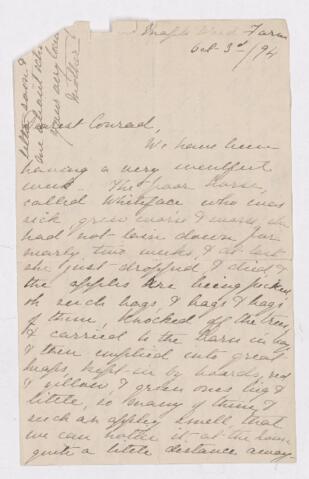 Maple Wood Farm
Oct 3rd/94
Dearest Conrad,
We have been
having a very eventful
week. The poor horse,
called Whiteface who was
sick grew worse & worse, she
had not lain down for
nearly two weeks, & at last
she just dropped & died &
the apples are being picked
oh such bags, & bags & bags
of them, knocked off the trees,
& carried to the barn in bags
& then emptied into great
heaps, kept in by boards, red
& yellow & green ones big &
little, so many of them, &
such an appley smell, that
we can notice it at the house
quite a little distance away.
letter soon &
yours very lov
Mother